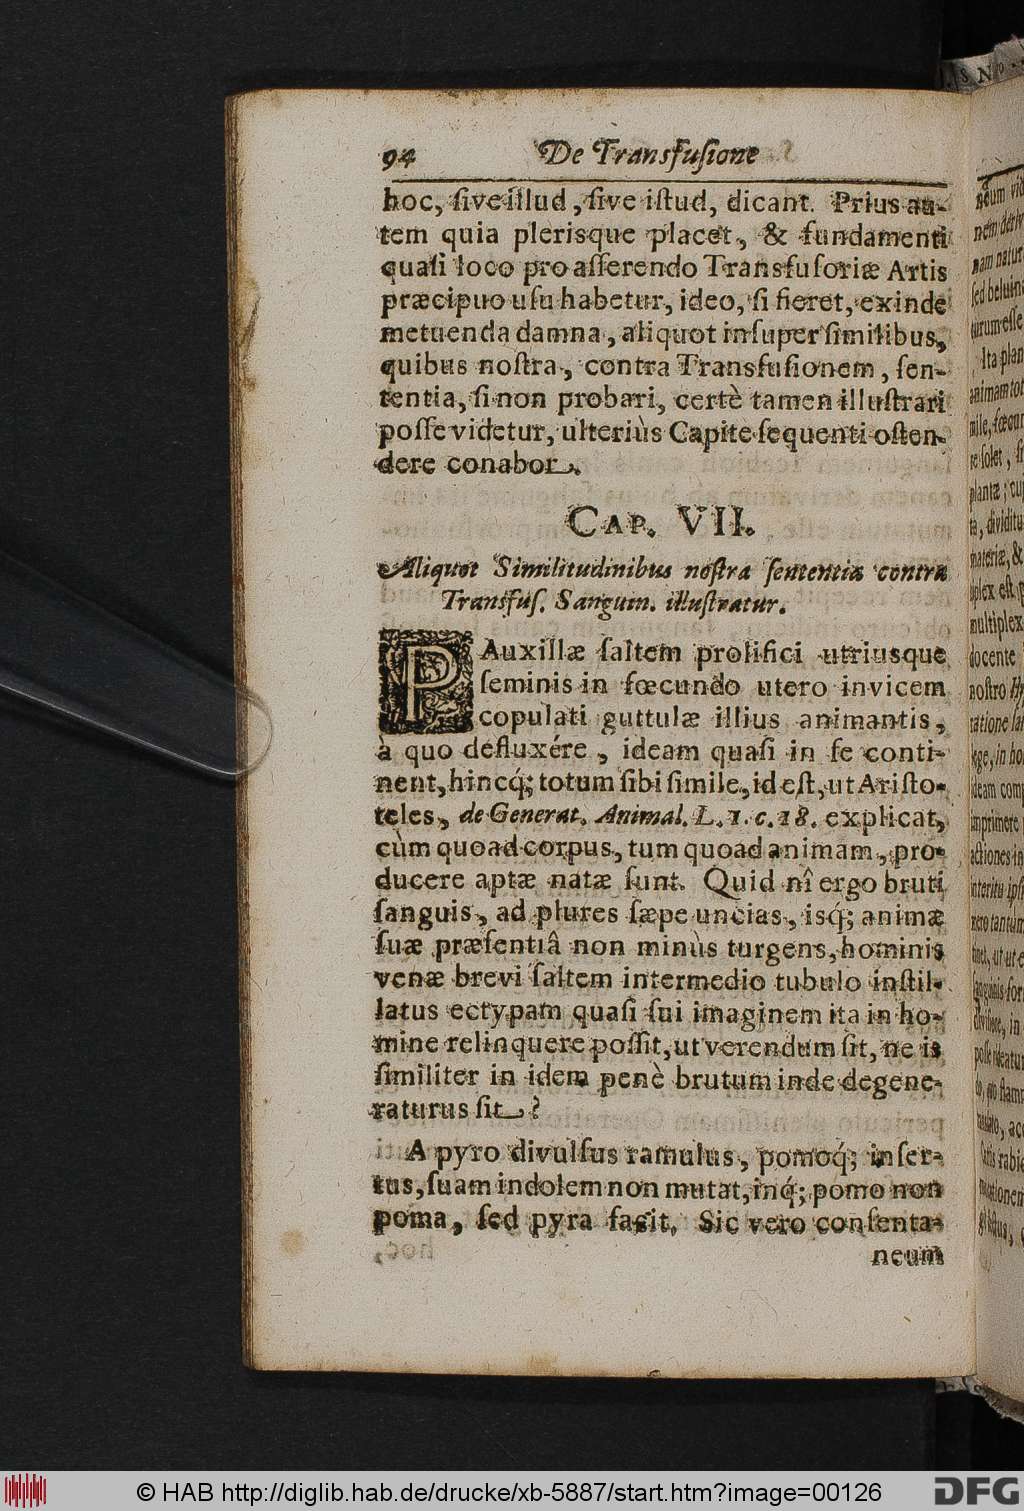 94 De Transfuſione
hoc, ſive illud, ſive iſtud, dicant. Prius au-
tem quia plerisque placet, & fundamenti
quaſi loco pro aſſerendo Transfuſoriæ Artis
præcipuo uſu habetur, ideo, ſi fieret, exinde
metuenda damna, aliquot inſuper ſimilibus,
quibus noſtra, contra Transfuſionem, ſen-
tentia, ſi non probari, certè tamen illuſtrari
poſſe videtur, ulteriùs Capite ſequenti oſten-
dere conabor.
CAP. VII.
Aliquot Similitudinibus noſtra ſententia contra
Transfuſ. Sanguin. illuſtratur.
PAuxillæ ſaltem prolifici utriusque
ſeminis in fœcundo utero invicem
copulati guttulæ illius animantis,
à quo defluxére, ideam quaſi in ſe conti-
nent, hincq́; totum ſibi ſimile, id eſt, ut Ariſto-
teles, de Generat. Animal. L. 1. c. 18. explicat,
cùm quoad corpus, tum quoad animam, pro-
ducere aptæ natæ ſunt. Quid nî ergo bruti
ſanguis, ad plures ſæpe uncias, isq́; animæ
ſuæ præſentiâ non minùs turgens, hominis
venæ brevi ſaltem intermedio tubulo inſtil-
latus ectypam quaſi ſui imaginem ita in ho-
mine relinquere poſſit, ut verendum ſit, ne is
ſimiliter in idem penè brutum inde degene-
raturus ſit?
A pyro divulſus ramulus, pomoq́; inſer-
tus, ſuam indolem non mutat, inq́; pomo non
poma, ſed pyra facit. Sic vero conſenta-
neum
© HAB http://diglib.hab.de/drucke/xb-5887/start.htm?image=00126
DFG